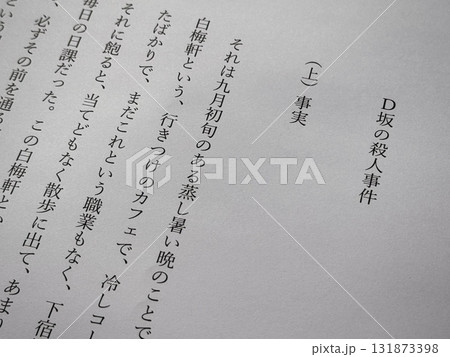 D坂の殺人事件
（上）事実
それは九月初旬のある蒸し暑い晩のことで
白梅軒という、行きつけのカフェで、冷しコー
たばかりで、まだこれという職業もなく、下宿
それに飽ると、当てどもなく散歩に出て、あまり
毎日の日課だった。この白梅軒とい
必ずその前を通る
という
PIXTA
131873398